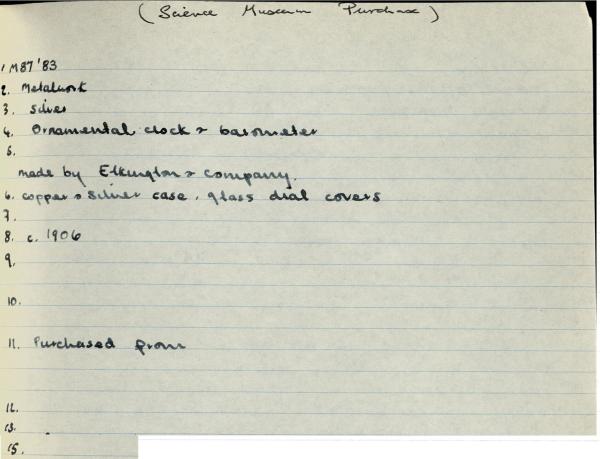 (Science Museum Purchase)
1 M87 '83
2. Metalwork
3. Silver
4. Ornamental clock & barometer
5.
made by Elkington & Company.
6. copper & silver case. glass dial covers
7.
8. c. 1906
9.
10.
11. Purchased from
12.
13.
15.